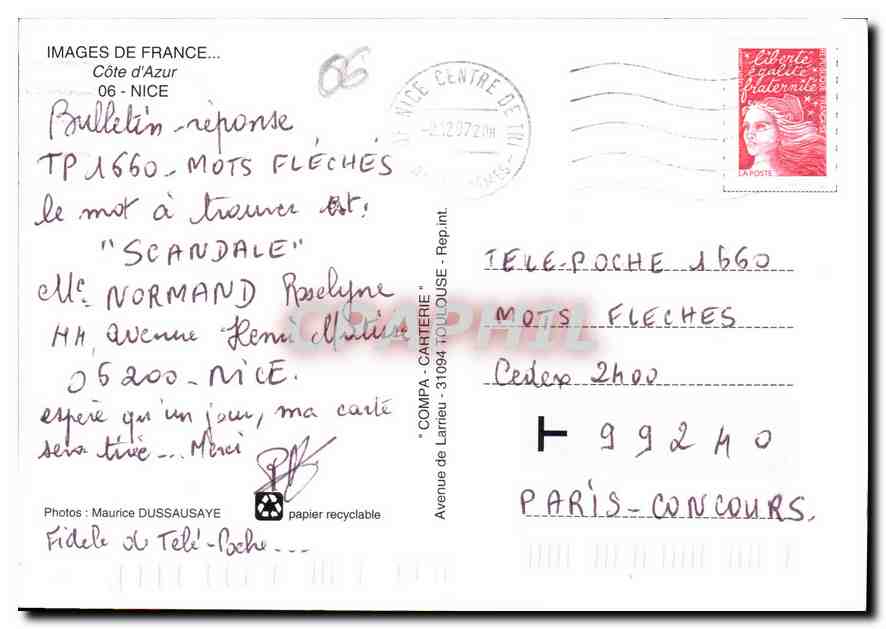 IMAGES DE FRANCE...
Côte d'Azur
06 - NICE
06
Bulletin-réponse
TP 1660 - MOTS FLÉCHÉS
le mot à trouver est:
"SCANDALE"
Me NORMAND Roselyne
44, avenue Henri Matisse
06200 - NICE.
espère qu'un jour, ma carte
sera tirée... Merci
Photos : Maurice DUSSAUSAYE
papier recyclable
Fidèle de Télé-Poche...
" COMPA - CARTERIE "
Avenue de Larrieu - 31094 TOULOUSE - Rep.int.
NICE CENTRE DE TRI
liberté
égalité
fraternité
LA POSTE
TELE-POCHE 1660
MOTS FLECHES
Cedex 2400
T 99240
PARIS-CONCOURS.
CPAPHIL